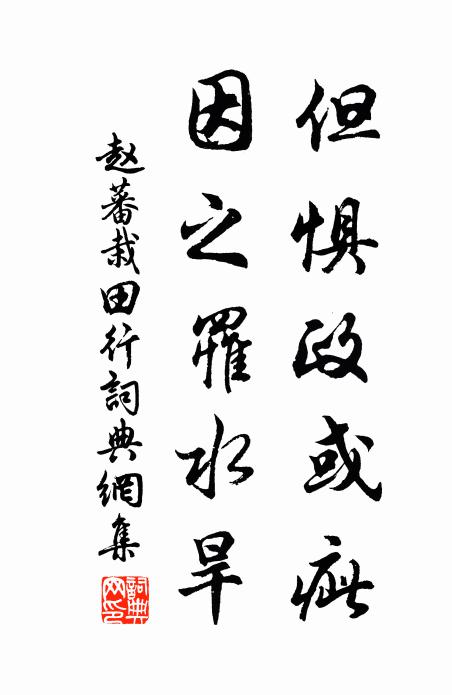 但惧政或疵
因之罹水旱
赵蕃栽田行詞典網集
詞典网印